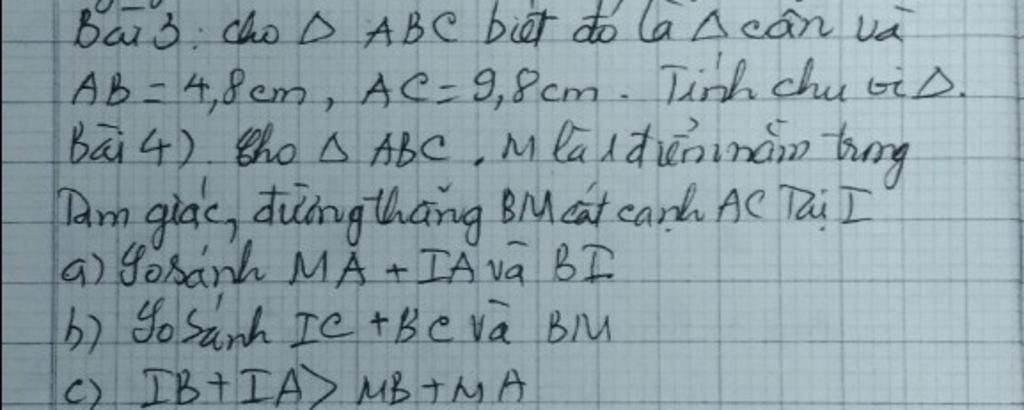 Bài 3: cho Δ ABC biết đó là Δ cân và
AB = 4,8cm, AC = 9,8cm. Tính chu vi Δ.
Bài 4) Cho Δ ABC, M là 1 điểm nằm trong
Tam giác, đường thẳng BM cắt cạnh AC Tại I
a) So sánh MA + IA và BI
b) So Sánh IC + BC và BM
c) IB + IA > MB + MA